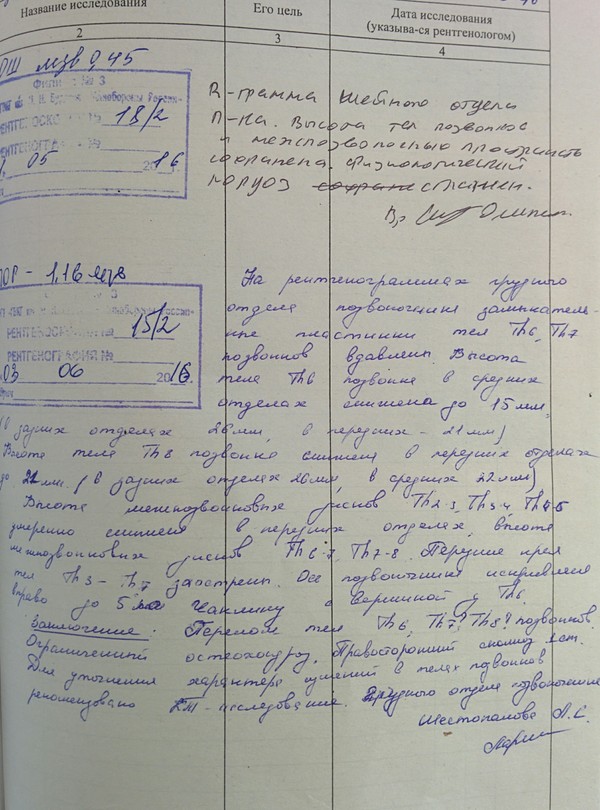 Название исследования
Его цель
Дата исследования
(указыва-ся рентгенологом)
2
3
4
мзв 0,45
Филиал № 3
18/2
05 2016
R-грамма шейного отдела
п-ка. Высота тел позвонков
и межпозвоночных пространств
сохранена. Физиологический
лордоз сглажен.
Вр
1,16 мзв
РЕНТГЕНОСКОПИЯ № 15/2
РЕНТГЕНОГРАФИЯ №
03 06 2016
На рентгенограммах грудного
отдела позвоночника замыкатель-
ные пластинки тел Th6, Th7
позвонков вдавлены. Высота
тела Th6 позвонка в средних
отделах снижена до 15 мм,
(в задних отделах 26 мм, в передних - 21 мм)
Высота тела Th8 позвонка снижена в передних отделах
до 21 мм. (в задних отделах 26 мм, в средних 22 мм)
Высота межпозвонковых дисков Th2-3, Th3-4, Th4-5
умеренно снижена в передних отделах, высота
межпозвонковых дисков Th6-7, Th7-8. Передние края
тел Th3 - Th7 заострены. Ось позвоночника искривлена
вправо до 5 Чаклину с вершиной у Th6.
Заключение: Перелом тел Th6, Th7? Th8? позвонков.
Ограниченный остеохондроз. Правосторонний сколиоз I ст.
Для уточнения характера изменений в телах позвонков
рекомендовано КМ-исследование. грудного отдела позвоночника
Шестопалова Л.С.